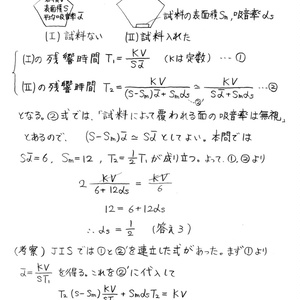 表面積S
平均吸音率ᾱ
試料の表面積Sm, 吸音率αs
(Ⅰ) 試料ない
(Ⅱ) 試料入れた
(Ⅰ)の残響時間 T₁ = KV/Sᾱ (Kは定数) … ①
(Ⅱ)の残響時間 T₂ = KV/((S−Sm)ᾱ+Smαs) ≃ KV/(Sᾱ+Smαs) … ②
② ②'
となる。②式では、「試料によって覆われる面の吸音率は無視」
とあるので、 (S−Sm)ᾱ ≃ Sᾱ としてよい。本問では
Sᾱ=6, Sm=12, T₂=½T₁ が成り立つ。よって、①,②より
2 KV/(6+12αs) = KV/6
12 = 6+12αs
∴ αs = 1/2 (答え3)
(考察) JISでは①と②'を連立した式があった。まず①より
ᾱ = KV/ST₁ を得る。これを②'に代入して
T₂(S−Sm) KV/ST₁ + SmαsT₂ = KV